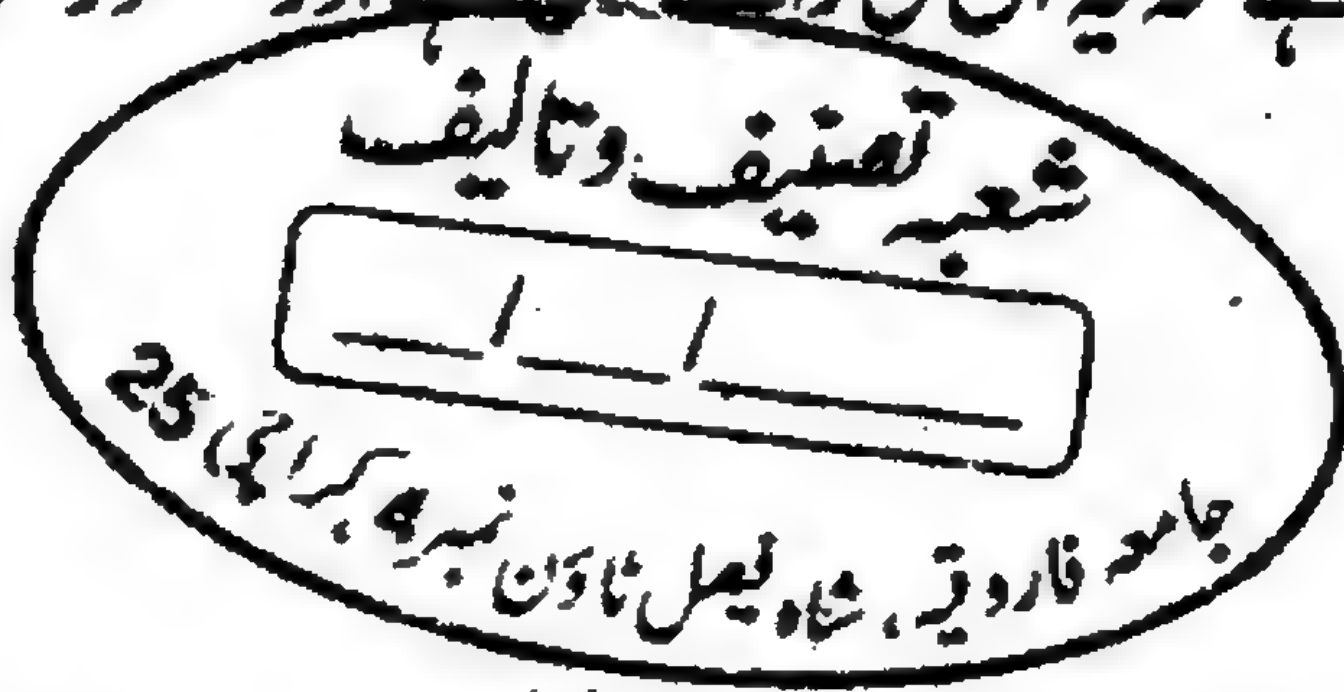 شعبہ تصنیف وتالیف
جامعہ فاروقیہ، شاہ فیصل ٹاؤن نمبر ۴ کراچی 25